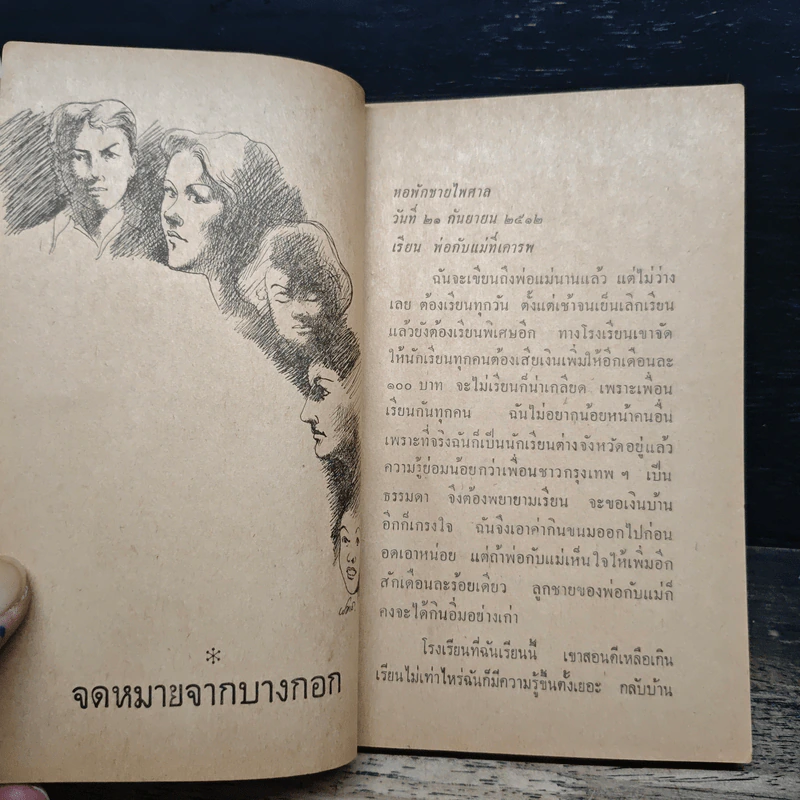 *
จดหมายจากบางกอก
หอพักชายไพศาล
วันที่ ๒๑ กันยายน ๒๕๑๒
เรียน พ่อกับแม่ที่เคารพ
ฉันจะเขียนถึงพ่อแม่นานแล้ว แต่ไม่ว่าง
เลย ต้องเรียนทุกวัน ตั้งแต่เช้าจนเย็นเลิกเรียน
แล้วยังต้องเรียนพิเศษอีก ทางโรงเรียนเขาจัด
ให้นักเรียนทุกคนต้องเสียเงินเพิ่มให้อีกเดือนละ
๑๐๐ บาท จะไม่เรียนก็น่าเกลียด เพราะเพื่อน
เรียนกันทุกคน ฉันไม่อยากน้อยหน้าคนอื่น
เพราะที่จริงฉันก็เป็นนักเรียนต่างจังหวัดอยู่แล้ว
ความรู้ย่อมน้อยกว่าเพื่อนชาวกรุงเทพ ฯ เป็น
ธรรมดา จึงต้องพยายามเรียน จะขอเงินบ้าน
อีกก็เกรงใจ ฉันจึงเอาค่ากินขนมออกไปก่อน
อดเอาหน่อย แต่ถ้าพ่อกับแม่เห็นใจให้เพิ่มอีก
สักเดือนละร้อยเดียว ลูกชายของพ่อกับแม่ก็
คงจะได้กินอิ่มอย่างเก่า
โรงเรียนที่ฉันเรียนนี้ เขาสอนดีเหลือเกิน
เรียนไม่เท่าไหร่ฉันก็มีความรู้ขึ้นตั้งเยอะ กลับบ้าน